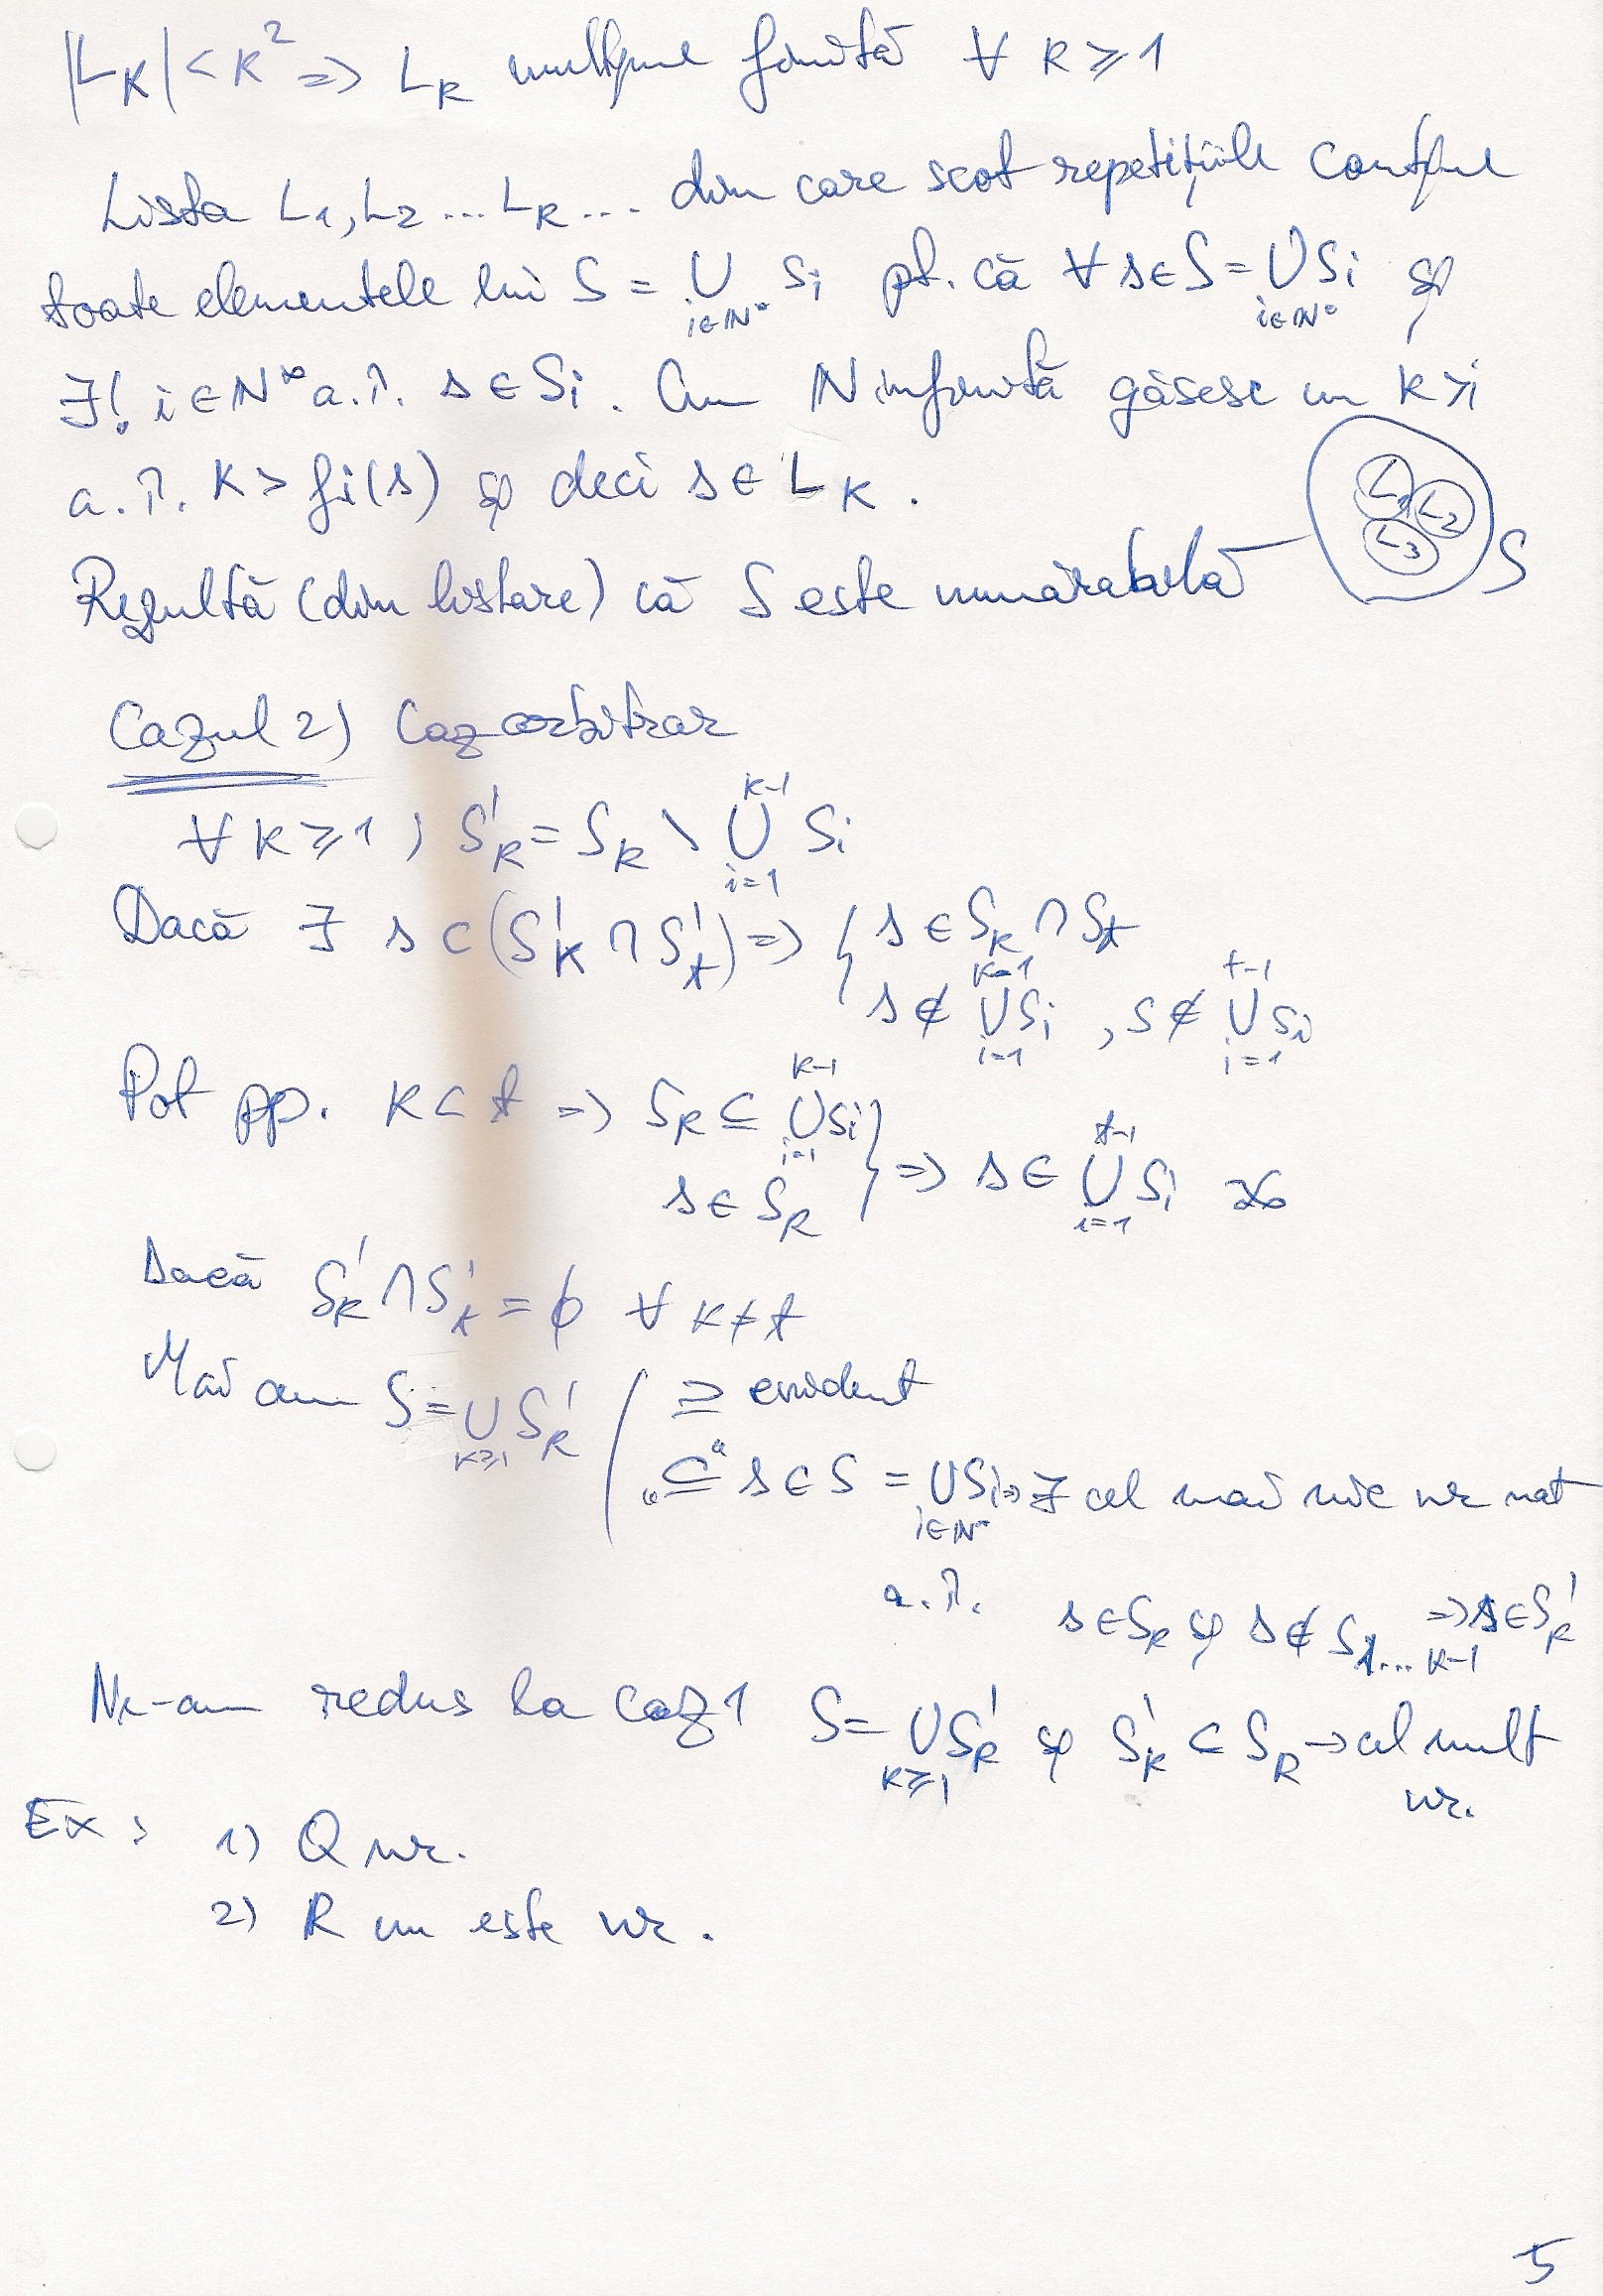 |L_K| < K² => L_K mulțime finită ∀ K ≥ 1
Lista L₁, L₂ ... L_K ... din care scot repetițiile conține
toate elementele lui S = ∪_{i∈N*} S_i pt. că ∀ s ∈ S = ∪_{i∈N*} S_i și
∃! i ∈ N* a.î. s ∈ S_i. Cum N infinită găsesc un K > i
a.î. K > f_i(s) și deci s ∈ L_K.
L₁ L₂ L₃ S
Rezultă (din listare) că S este numărabilă
Cazul 2) Caz arbitrar
∀ K ≥ 1, S'_K = S_K \ ∪_{i=1}^{K-1} S_i
Dacă ∃ s ⊂ (S'_K ∩ S'_t) => { s ∈ S_K ∩ S_t
s ∉ ∪_{i=1}^{K-1} S_i, s ∉ ∪_{i=1}^{t-1} S_i
Pot pp. K < t => S_K ⊆ ∪_{i=1}^{K-1} S_i
s ∈ S_K } => s ∈ ∪_{i=1}^{t-1} S_i
Dacă S'_K ∩ S'_t = ϕ ∀ K ≠ t
Mai am S = ∪_{K≥1} S'_K ( ⊇ evident
„⊆" s ∈ S = ∪_{i∈N*} S_i => ∃ cel mai mic nr nat
a.î. s ∈ S_K și s ∉ S_{1...K-1} => s ∈ S'_K
Ne-am redus la caz 1 S = ∪_{K≥1} S'_K și S'_K ⊂ S_K → cel mult
nr.
Ex: 1) Q nr.
2) R nu este nr.
5